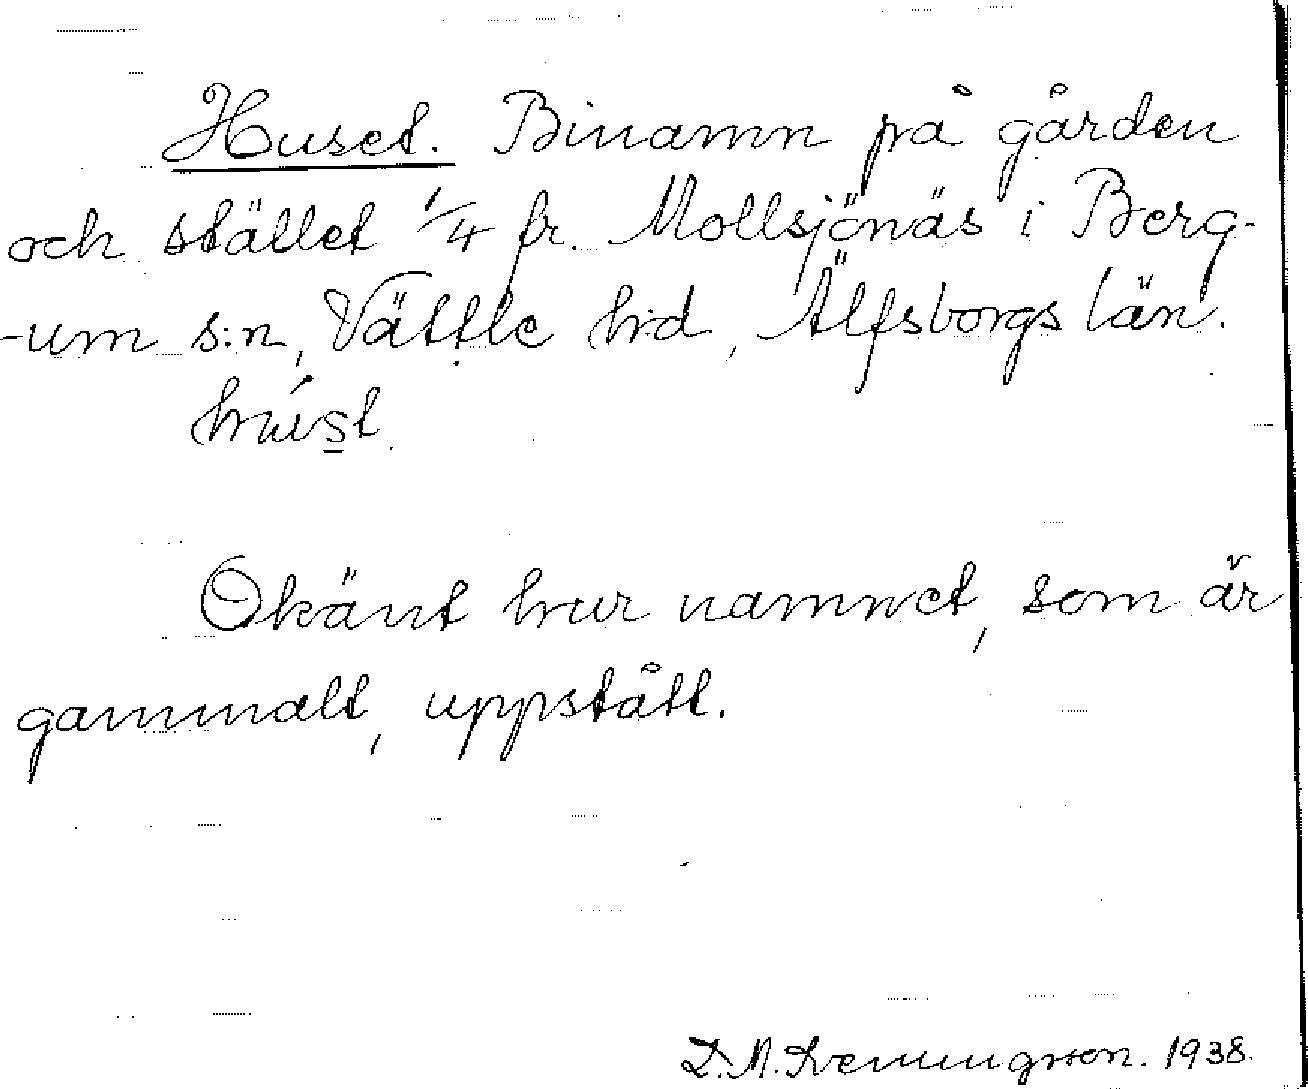 Huset. Binamn på gården
och stället 1/4 fr. Mollsjönäs i Berg-
-um s:n, Vättle hd, Älfsborgs län.
húst.
Okänt hur namnet, som är
gammalt, uppstått.
1938.